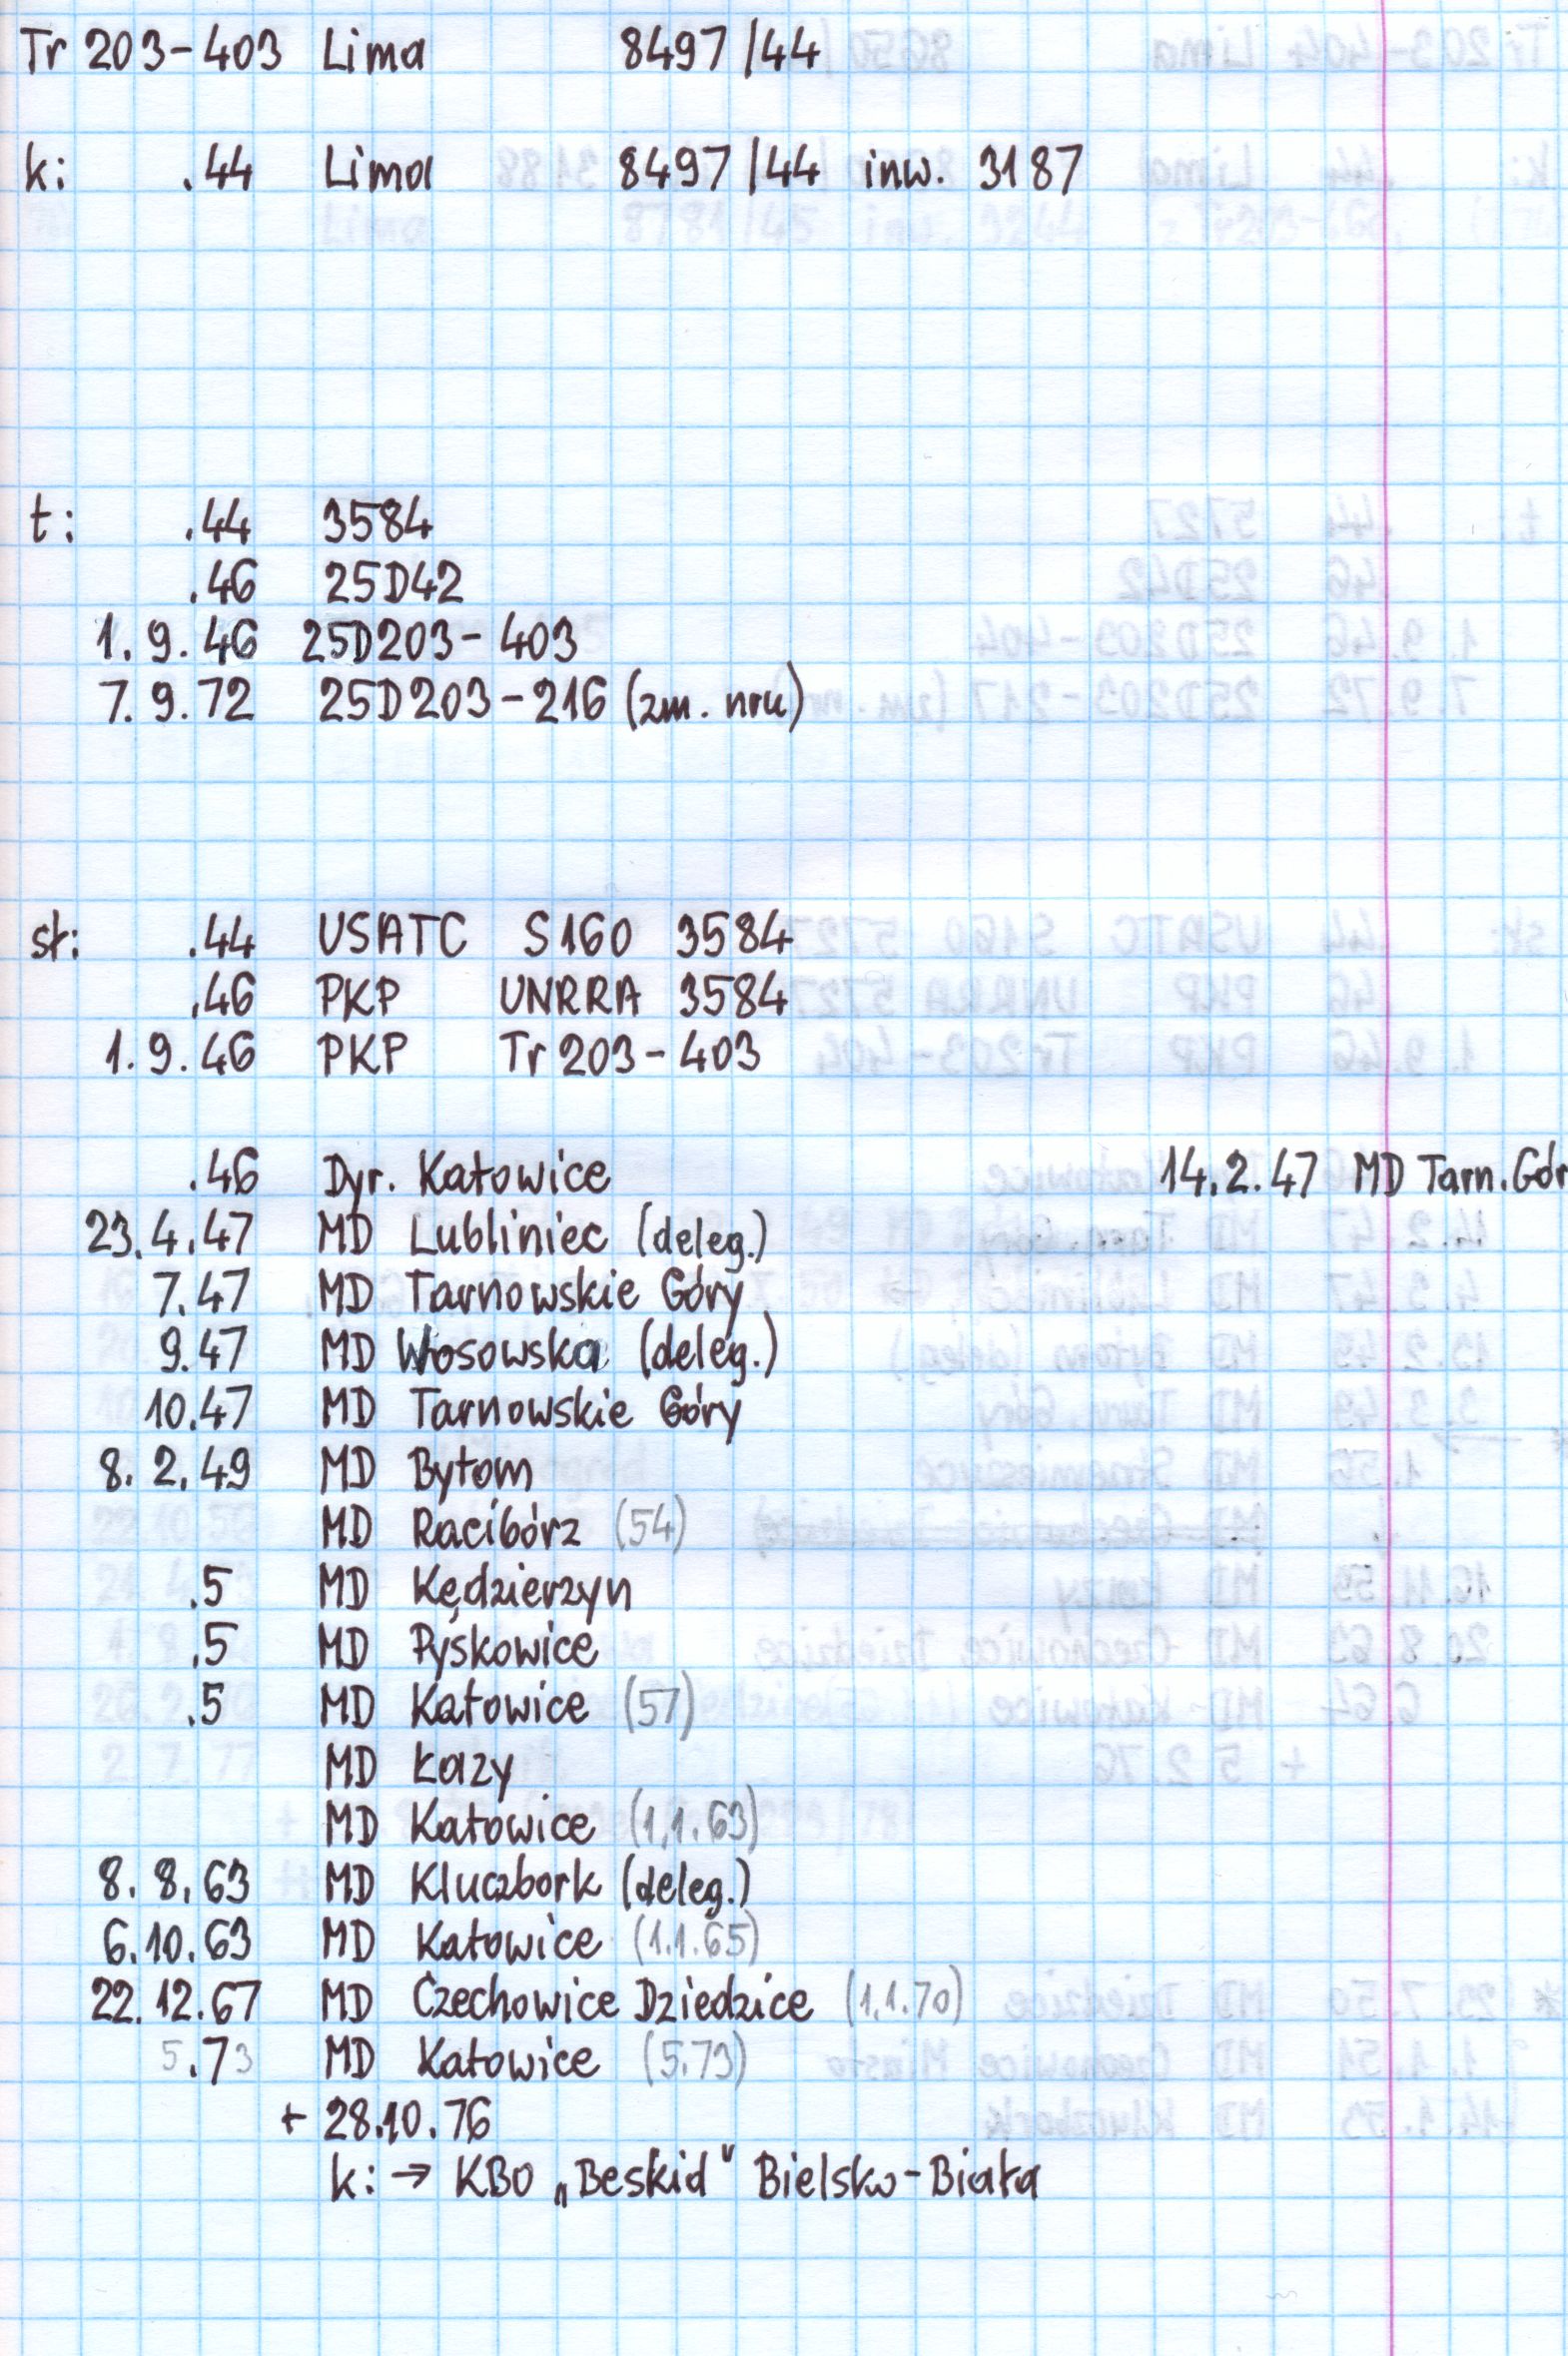 Tr 203-403 Lima 8497/44
k: .44 Lima 8497/44 inw. 3187
t: .44 3584
.46 25D42
1.9.46 25D203-403
7.9.72 25D203-216 (zm. nru)
st: .44 USATC S160 3584
.46 PKP UNRRA 3584
1.9.46 PKP Tr 203-403
.46 Dyr. Katowice 14.2.47 MD Tarn. Gór
23.4.47 MD Lubliniec (deleg.)
7.47 MD Tarnowskie Góry
9.47 MD Wosowska (deleg.)
10.47 MD Tarnowskie Góry
8.2.49 MD Bytom
MD Racibórz (54)
.5 MD Kędzierzyn
.5 MD Pyskowice
.5 MD Katowice (57)
MD Łazy
MD Katowice (1.1.63)
8.8.63 MD Kluczbork (deleg.)
6.10.63 MD Katowice (1.1.65)
22.12.67 MD Czechowice Dziedzice (1.1.70)
5.73 MD Katowice (5.73)
+ 28.10.76
k: → KBO „Beskid" Bielsko-Biała